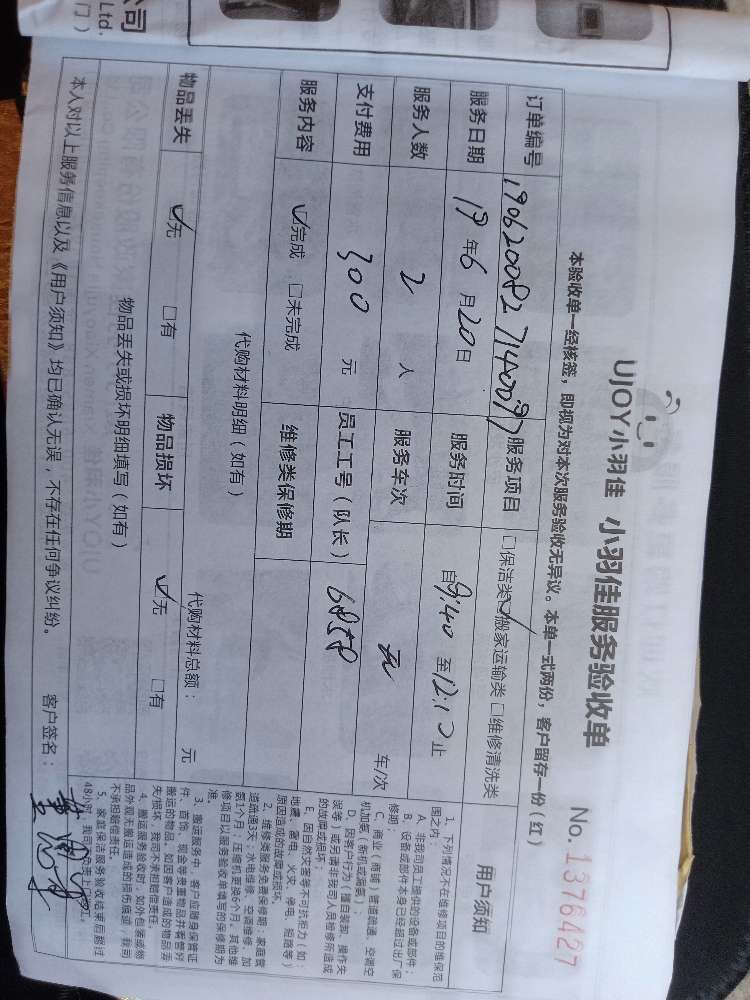 公司
Ltd.
门）
UJOY小羽佳 小羽佳服务验收单
No. 1376427
本验收单一经核签，即视为对本次服务验收无异议。本单一式两份，客户留存一份（红）
订单编号 服务项目 □保洁类 ☑搬家运输类 □维修清洗类
服务日期 19年6月20日 服务时间 自9:40至12:10止
服务人数 2 人 服务车次 无 车/次
支付费用 300 元 员工工号（队长） 6858
服务内容 ☑完成 □未完成 维修类保修期
代购材料明细（如有）
代购材料总额： 元
物品丢失 ☑无 □有 物品损坏 ☑无 □有
物品丢失或损坏明细填写（如有）
本人对以上服务信息以及《用户须知》均已确认无误，不存在任何争议纠纷。 客户签名：
用户须知
1、下列情况不在维修项目的维保范
围之内：
A、非我司员工提供的设备或部件；
B、设备或部件本身已经超过出厂保
修期；
C、商业（商铺）管道疏通、空调空
机加氟（新机或漏氟）；
D、因客户行为（擅自装卸、操作失
误等）或另请非我司人员检修所造成
的故障或损坏；
E、因自然灾害等不可抗力（如：
地震、雷电、火灾、停电、短路等）
原因造成的故障或损坏。
2、维修类服务免费保修期：家庭管
道疏通3天；水电维修、空调维修、加
氨1个月；压缩机更换6个月。其他维
修项目以服务验收单填写的保修期为
准。
3、搬运服务中，客户应随身保管证
件、首饰、现金等贵重物品并看管好
搬运的物品，如因客户造成的物品丢
失/损坏，我司不承担赔偿责任。
4、搬运服务验收时，如外包装或物
品外观无搬运造成的损伤痕迹，我司
不承担赔偿责任。
5、家庭保洁服务验收结束后超过
48小时，我司不负责上门返工。